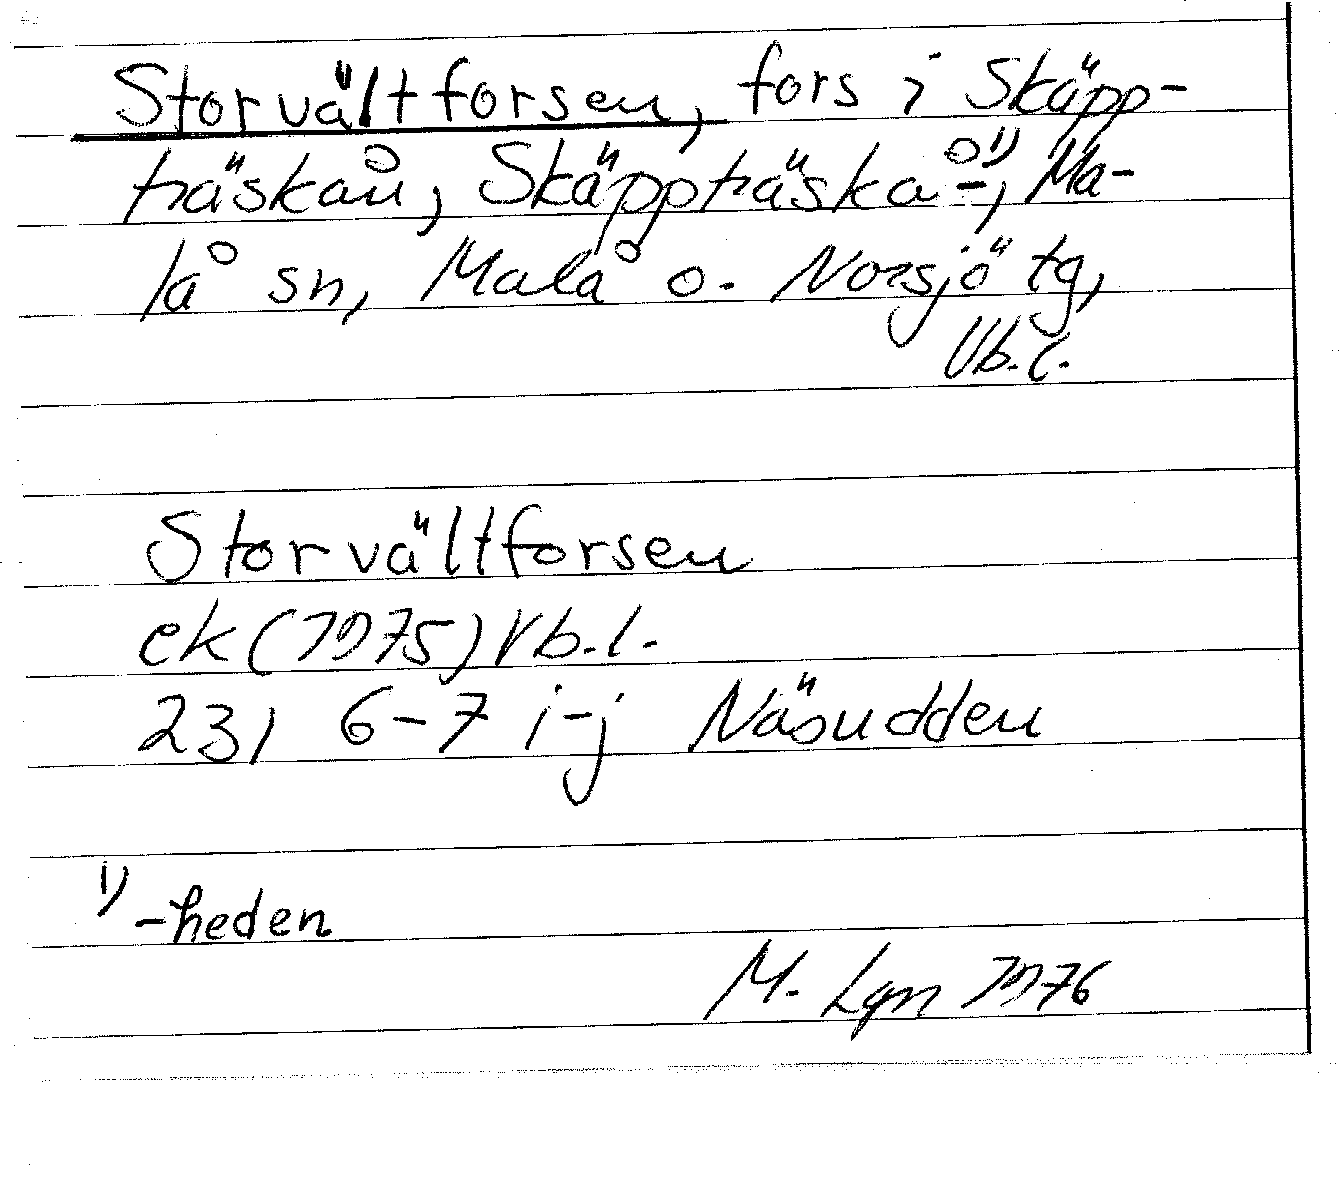 Storvältforsen, fors i Skäpp-
träskån, Skäppträskå-¹⁾, Ma-
lå sn, Malå o. Norsjö tg,
Vb.l.
Storvältforsen
ek (1975) Vb.l.
23I 6-7 i-j Näsudden
¹⁾ -heden
M. Lgn 1976